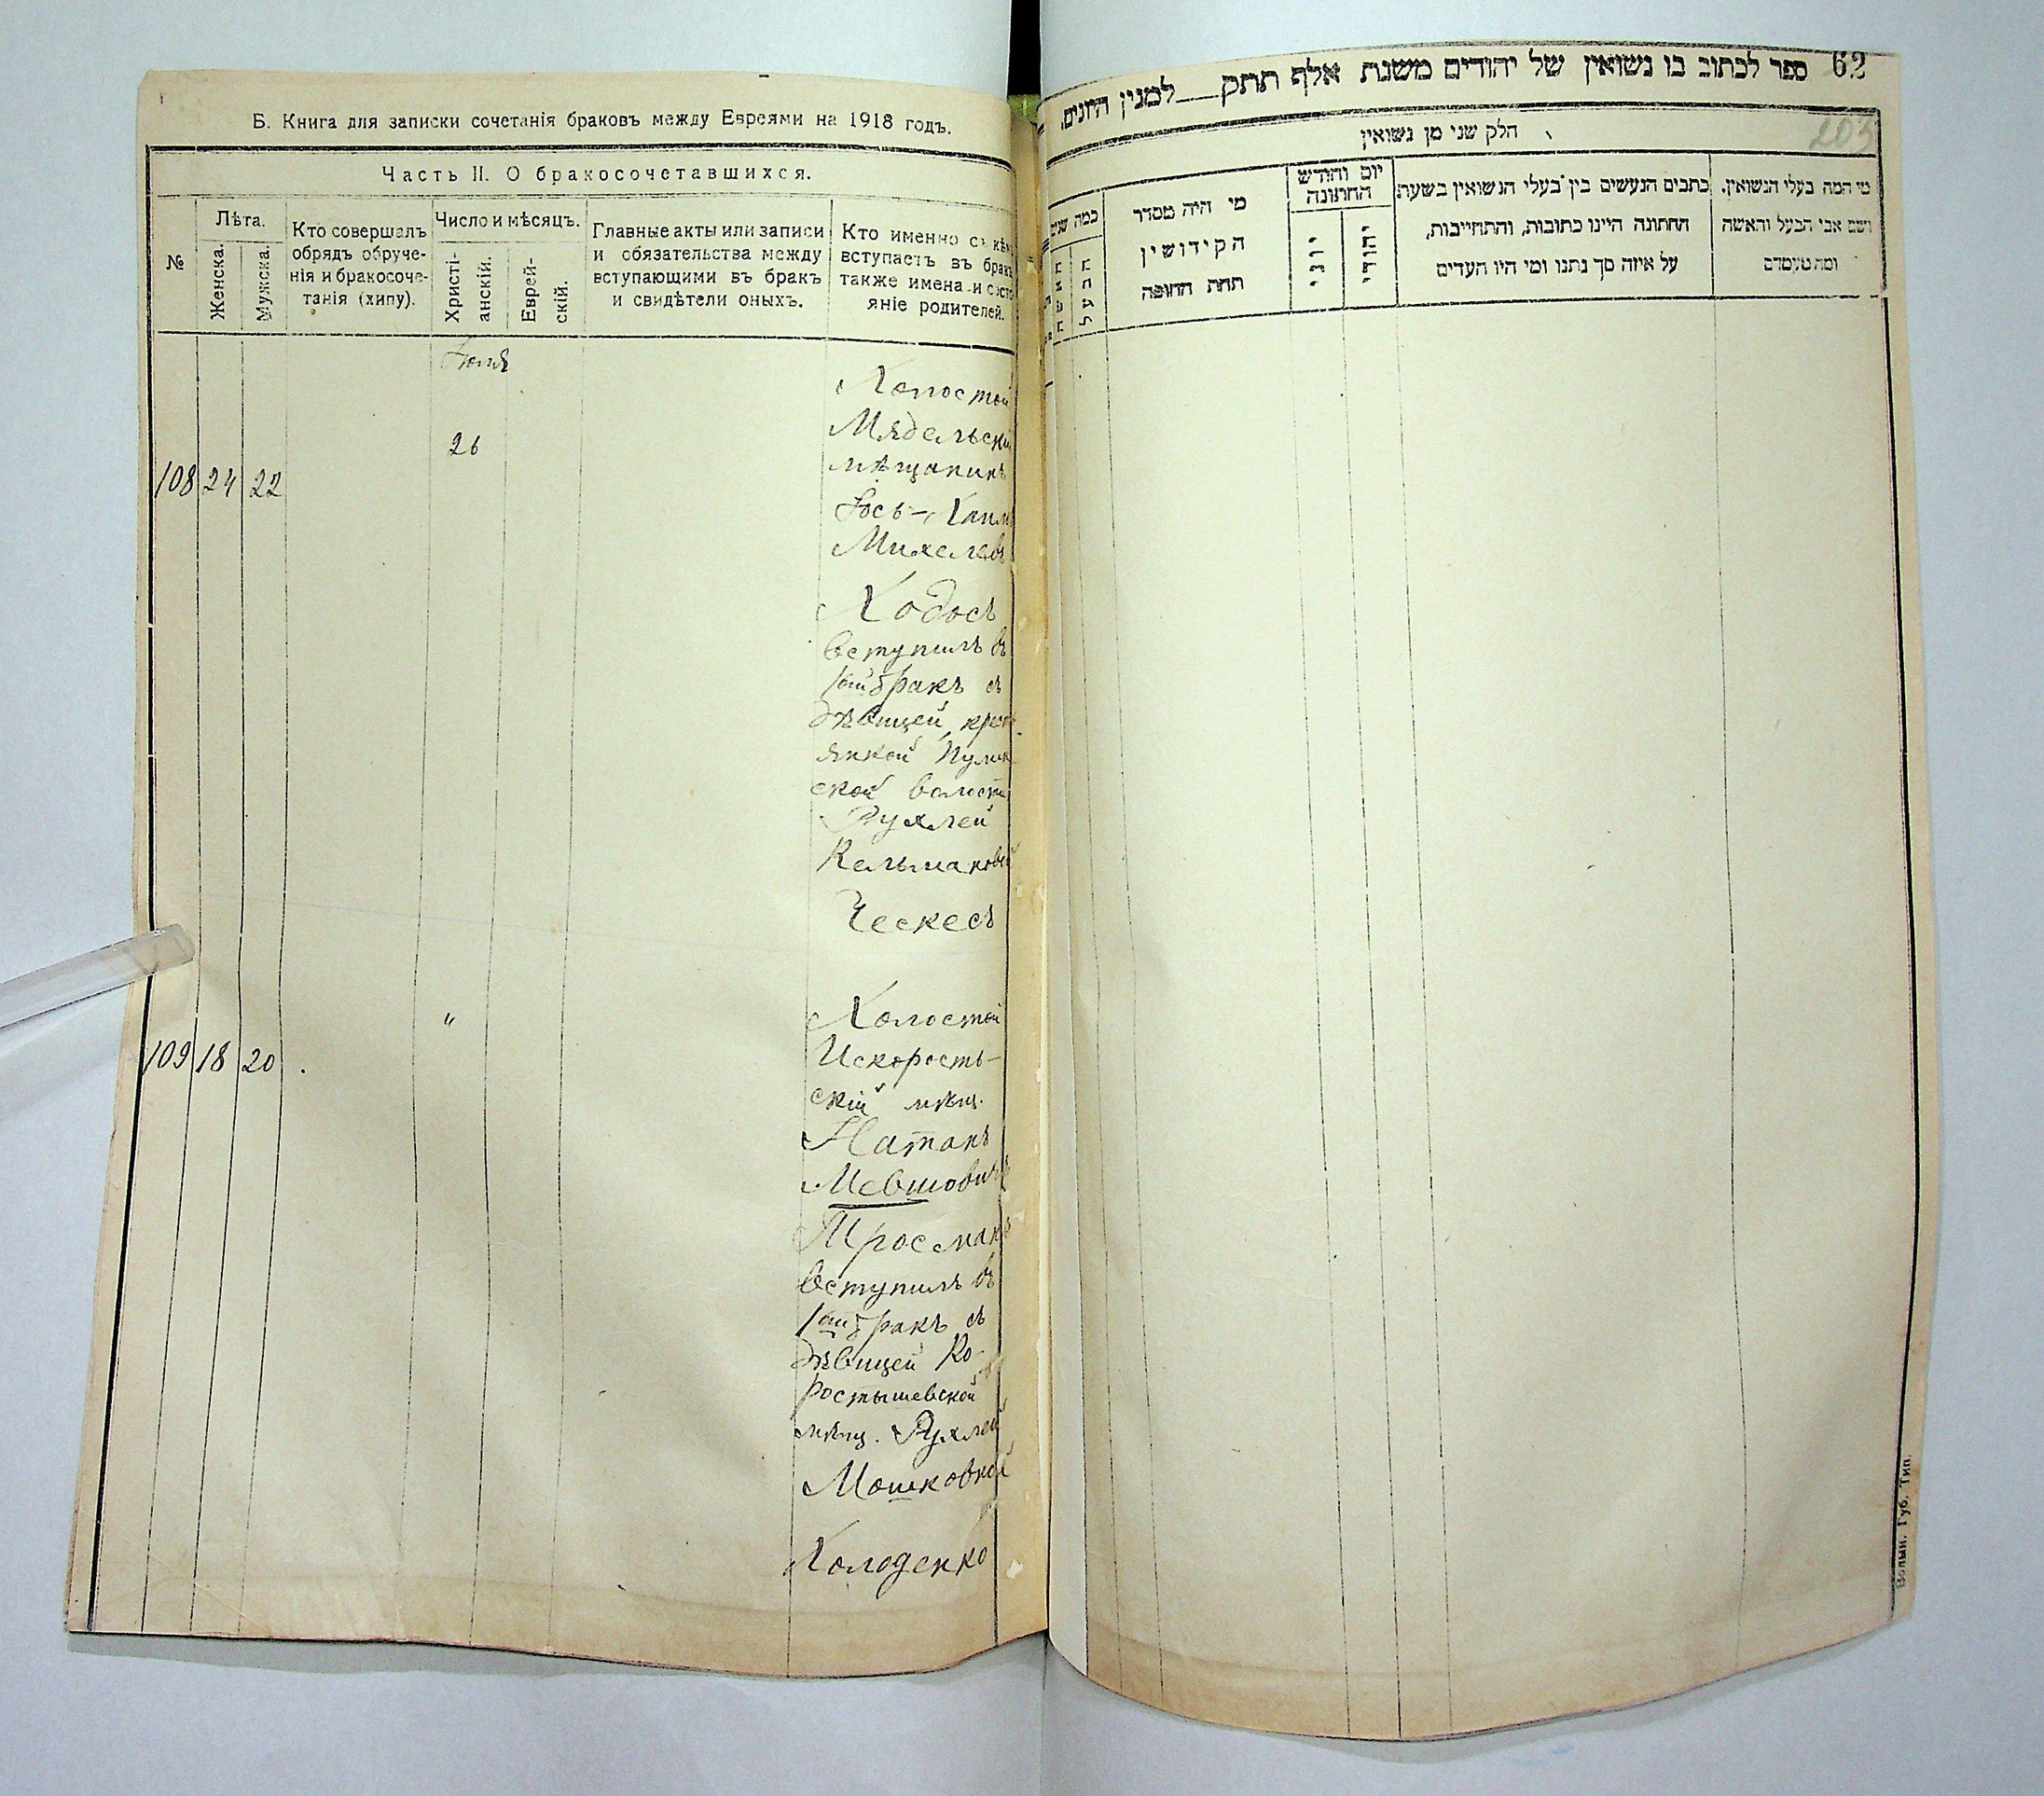 Б. Книга для записки сочетанія браковъ между Евреями на 1918 годъ.
Часть II. О бракосочетавшихся.
№
Лѣта.
Женска.
Мужска.
Кто совершалъ
обрядъ обруче-
нія и бракосоче-
танія (хипу).
Число и мѣсяцъ.
Христі-
анскій.
Еврей-
скій.
Главные акты или записи
и обязательства между
вступающими въ бракъ
и свидѣтели оныхъ.
Кто именно съ кѣмъ
вступаетъ въ бракъ
также имена и состо
яніе родителей.
108 24 22
26
Холостой
Мядельскій
мѣщанинъ
Михелевъ
Ходосъ
вступилъ въ
1ый бракъ съ
дѣвицей, крест
янкой
ской волости
Рухлей
Кельмановой
Ческесъ
109 18 20
"
Холостой
Искорость-
скій мѣщ.
Натанъ
Мевшовичъ
Тросманъ
вступилъ въ
1ый бракъ съ
дѣвицей Ко-
ростышевской
мѣщ. Рухлей
Мошковной
Холоденко
62
ספר לכתוב בו נשואין של יהודים משנת אלף תתק למנין היונים.
203
חלק שני מן נשואין
כמה שנים
האשה
הבעל
מי היה מסדר
הקידושין
תחת החופה
יום וחודש
החתונה
יוני
יהודי
כתבים הנעשים בין בעלי הנשואין בשעת
החתונה היינו כתובות, והתחייבות,
על איזה סך נתנו ומי היו העדים
מי המה בעלי הנשואין,
ושם אבי הבעל והאשה
ומה מעמדם
Волын. Губ. Тип.